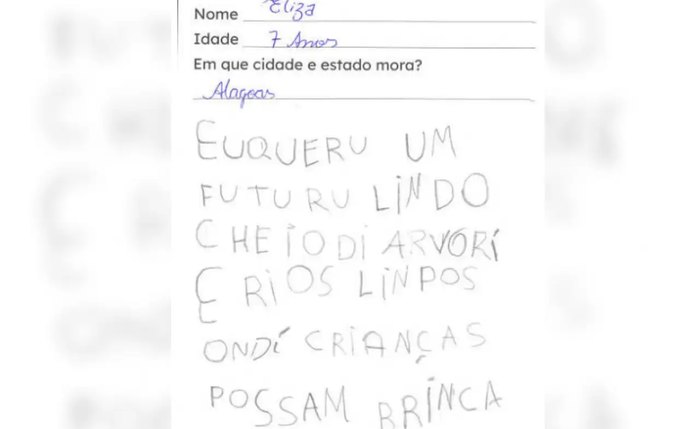 Nome Eliza
Idade 7 Anos
Em que cidade e estado mora?
Alagoas
EUQUERU UM
FUTURU LINDO
CHEIO DI ARVORI
E RIOS LINPOS
ONDÍ CRIANÇAS
POSSAM BRINCA